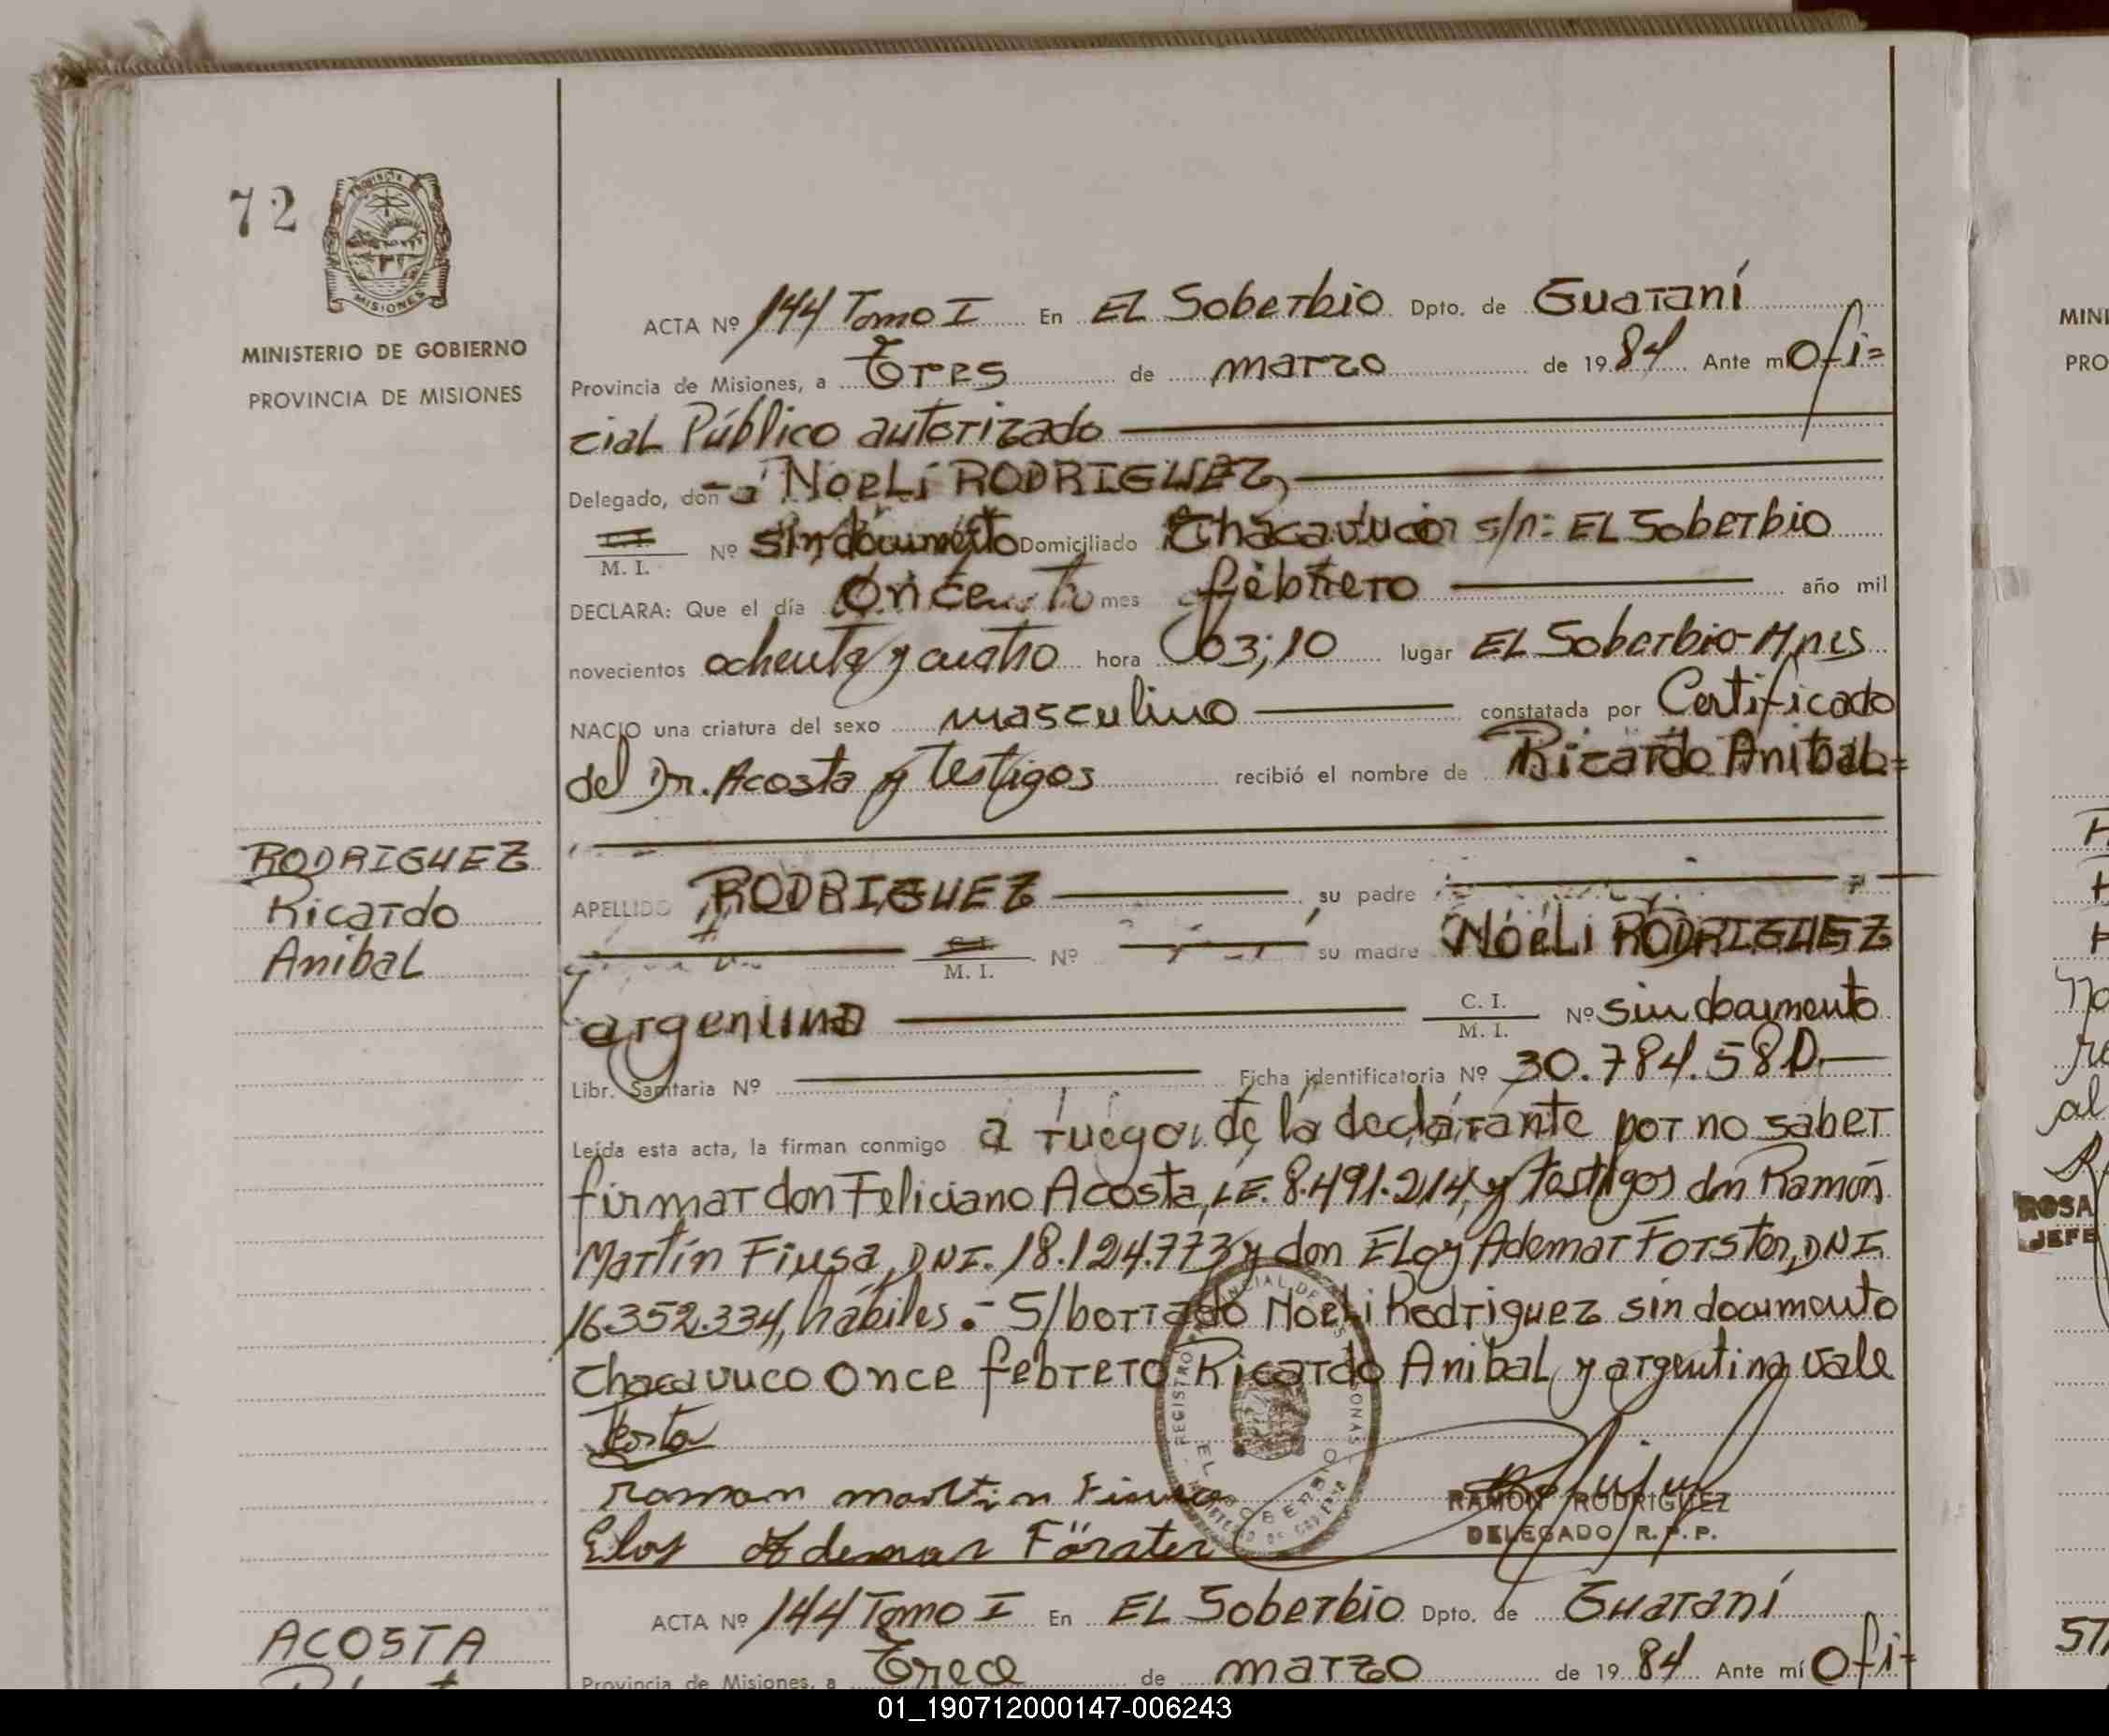 72
PROVINCIA
MISIONES
MINISTERIO DE GOBIERNO
PROVINCIA DE MISIONES
ACTA Nº 144 Tomo I En EL Soberbio Dpto. de Guaraní
Provincia de Misiones, a Tres de marzo de 1984 Ante mí Ofi=
cial Público autorizado
Delegado, don-a Noeli RODRIGUEZ,
M. I. Nº sin documento Domiciliado Chacavuco s/n: EL Soberbio
DECLARA: Que el día Once mes febrero año mil
novecientos ochenta y cuatro hora 03;10 lugar EL Soberbio-Mnes
NACIO una criatura del sexo masculino constatada por Certificado
del Dr. Acosta y Testigos recibió el nombre de Ricardo Anibal=
RODRIGUEZ
Ricardo
Anibal
APELLIDO RODRIGUEZ, su padre
M. I. Nº su madre Noeli RODRIGUEZ
argentina C. I. M. I. Nº sin documento
Libr. Sanitaria Nº Ficha identificatoria Nº 30.784.580.
Leída esta acta, la firman conmigo a ruego de la declarante por no saber
firmar don Feliciano Acosta, LE. 8.491.214, y testigos don Ramón
Martín Fiusa, DNI. 18.124.773 y don ELoy Ademar Forster, DNI.
16.352.334, hábiles.- S/borrado Noeli Rodriguez sin documento
Chacavuco Once febrero Ricardo Anibal y argentina vale
roman martin
Eloy Ademar Förster
REGISTRO PROVINCIAL DE LAS PERSONAS
EL SOBERBIO
RAMON RODRIGUEZ
DELEGADO R. P. P.
ACTA Nº 144 Tomo I En EL Soberbio Dpto. de Guaraní
ACOSTA
Provincia de Misiones, a Trece de marzo de 1984 Ante mí Ofi=
MINI
PRO
al
ROSA
JEFE
01_190712000147-006243